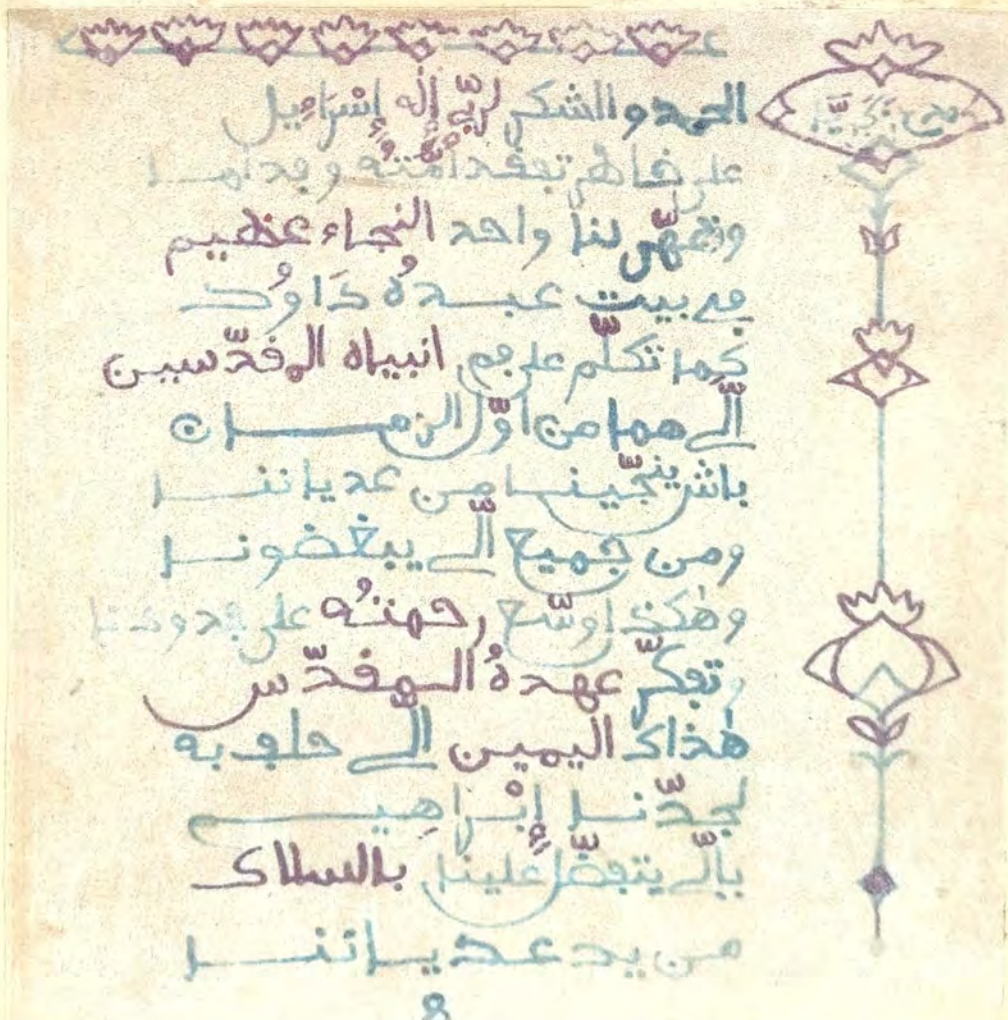 مدح زَكَرِيَّا
الحمد و الشكر لربّي إِلَٰه إِسْرَاءِيل
على خاطر تفقد أُمَّتُه وفداها
وظهّر لنا واحد النجاء عظيم
في بيت عبدهُ دَاوُد
كما تكلّم على فم انبياه المقدّسين
الّي هما من اوّل الزمان
باش ينجّينا من عدياننا
ومن جميع الّي يبغضونا
وهكذا وسّع رحمتُه على جدودنا
وتفكّر عهدهُ المقدّس
هذاك اليمين الّي حلف به
لجدّنا إِبْراهِيم
بالّي يتفضّل علينا بالسلاك
من يد عدياننا
8